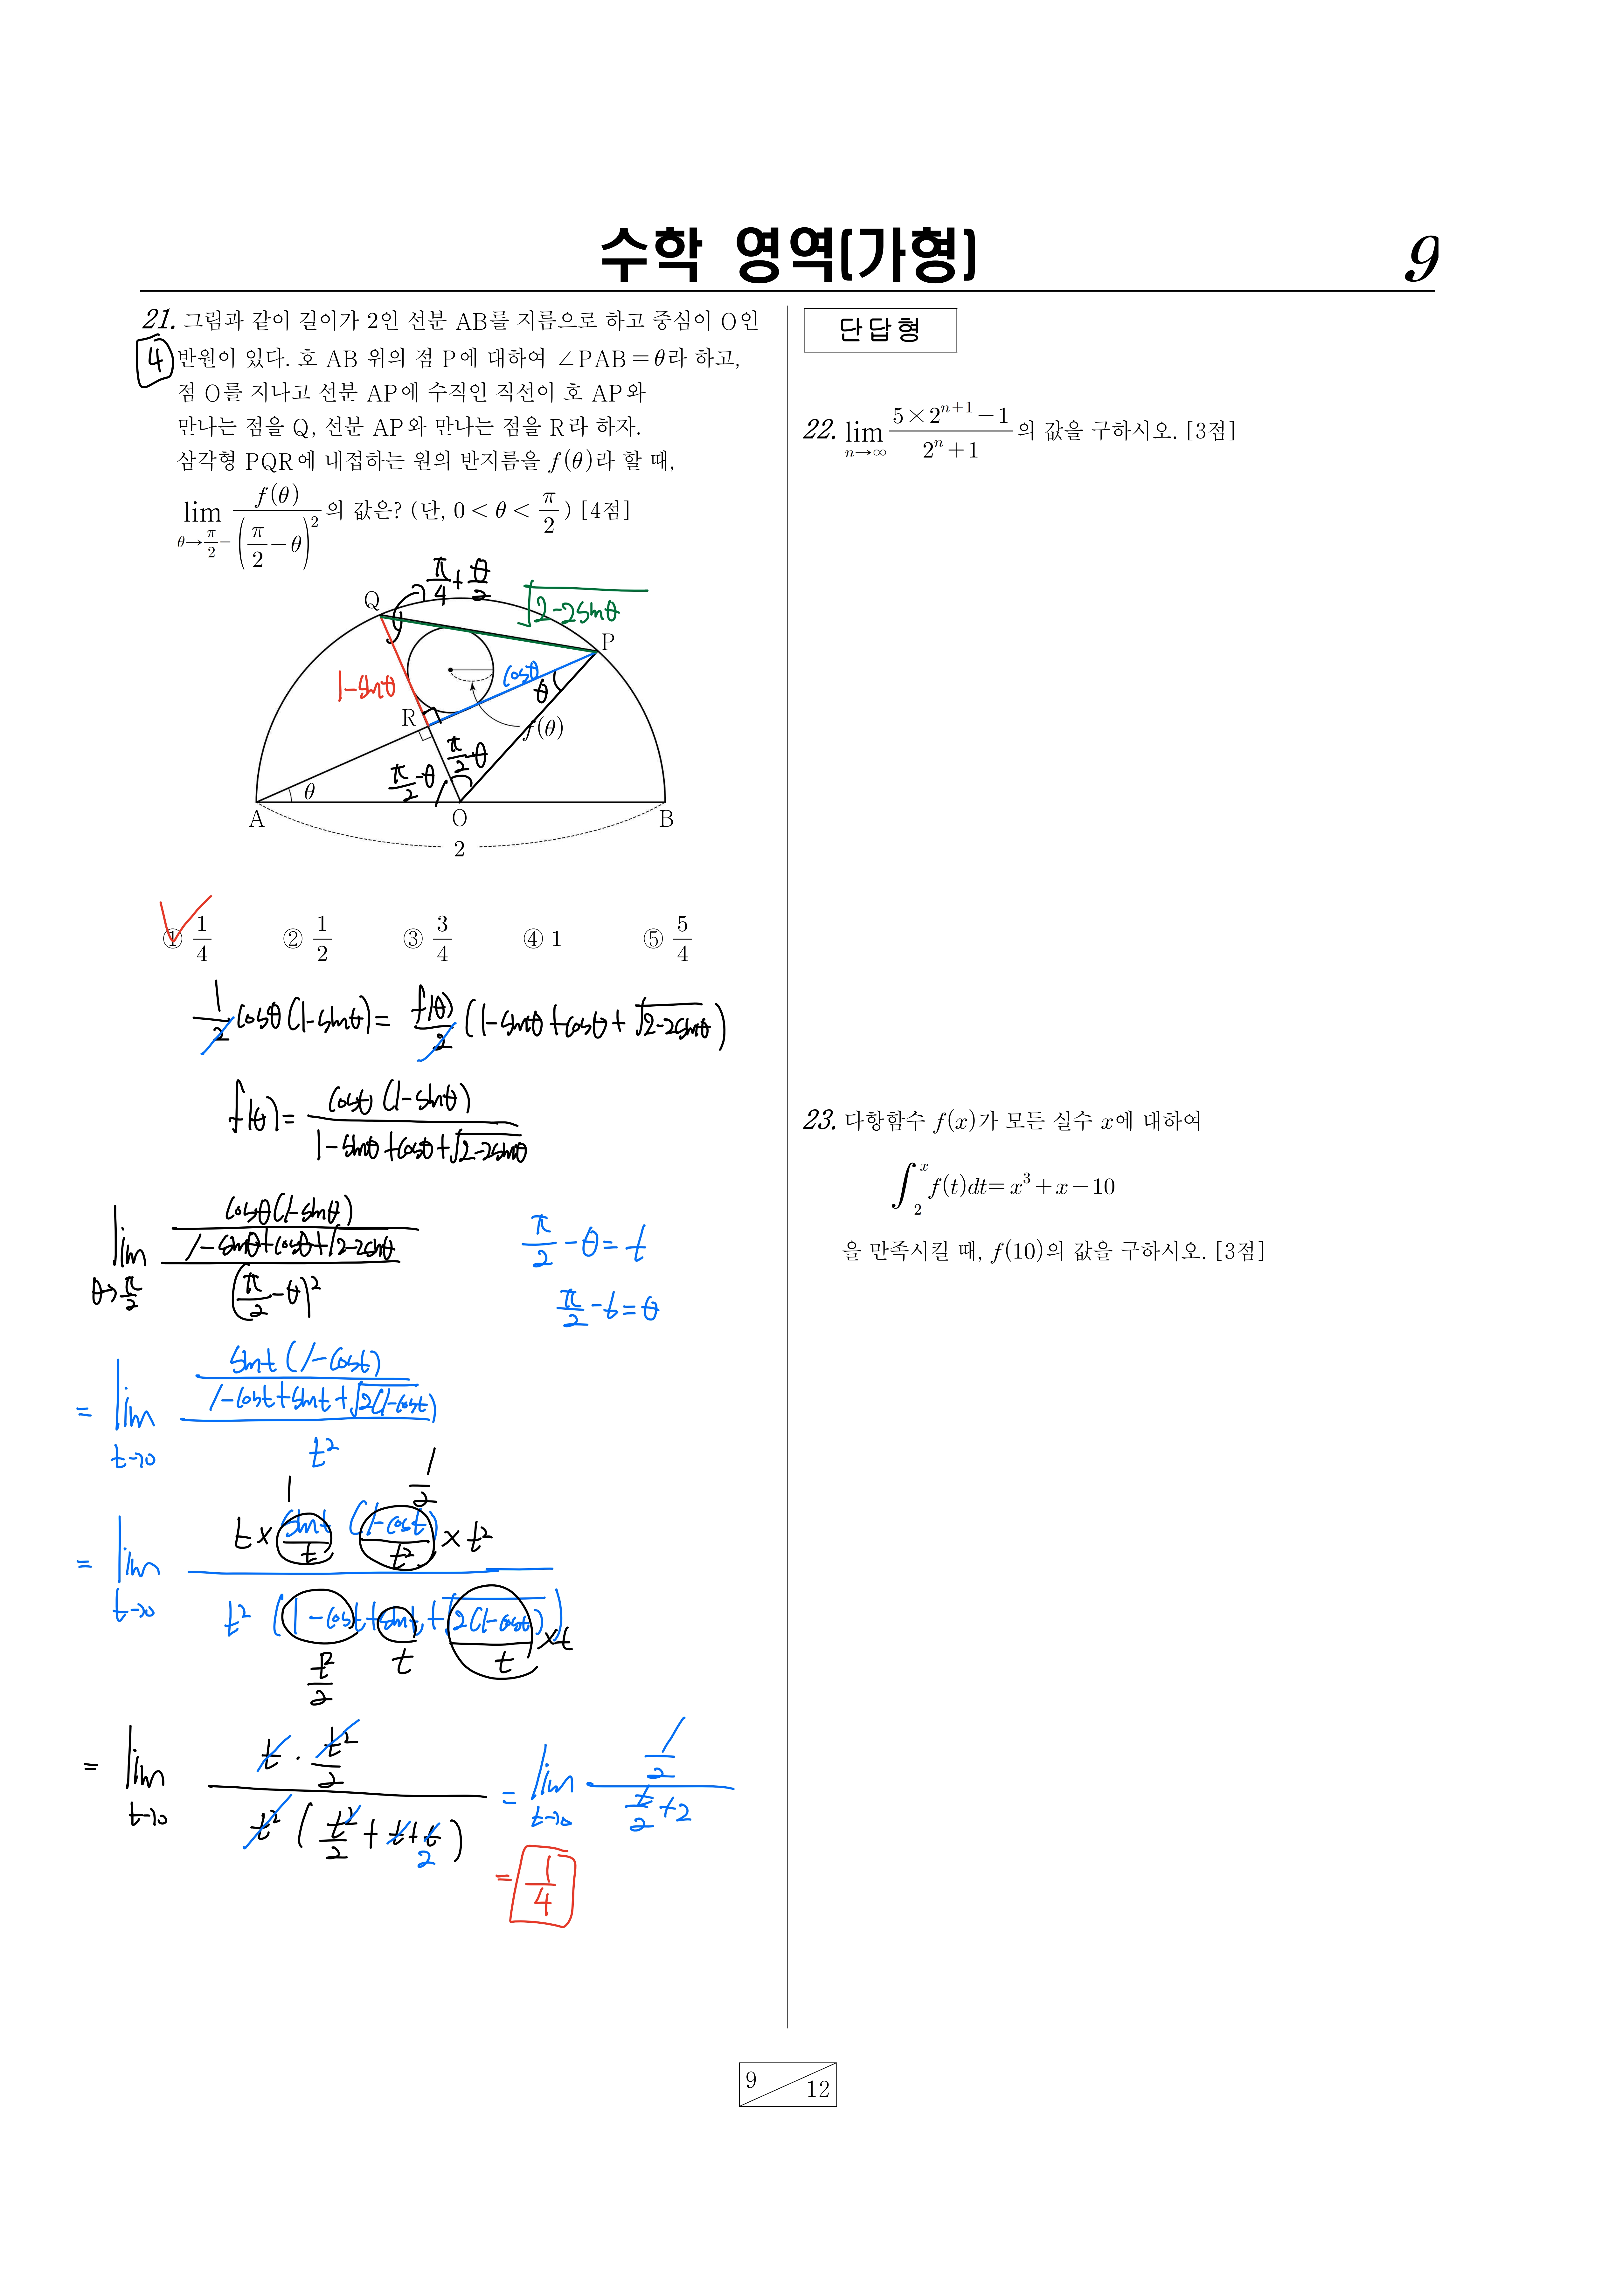 수학 영역(가형)
9
21. 그림과 같이 길이가 2인 선분 AB를 지름으로 하고 중심이 O인
4 반원이 있다. 호 AB 위의 점 P에 대하여 ∠PAB=θ라 하고,
점 O를 지나고 선분 AP에 수직인 직선이 호 AP와
만나는 점을 Q, 선분 AP와 만나는 점을 R라 하자.
삼각형 PQR에 내접하는 원의 반지름을 f(θ)라 할 때,
lim_{θ→π/2−} f(θ)/(π/2−θ)^2 의 값은? (단, 0<θ<π/2) [4점]
π/4+θ/2
√(2-2sinθ)
Q
P
1-sinθ
cosθ
θ
R
f(θ)
π/2-θ
π/2-θ
θ
A
O
B
2
① 1/4 ② 1/2 ③ 3/4 ④ 1 ⑤ 5/4
1/2 cosθ(1-sinθ)= f(θ)/2 (1-sinθ+cosθ+√(2-2sinθ))
f(θ)= cosθ(1-sinθ)/(1-sinθ+cosθ+√(2-2sinθ))
lim_{θ→π/2} (cosθ(1-sinθ)/(1-sinθ+cosθ+√(2-2sinθ)))/(π/2-θ)^2
π/2-θ=t
π/2-t=θ
= lim_{t→0} (sint(1-cost)/(1-cost+sint+√(2(1-cost))))/t^2
1 1/2
= lim_{t→0} (t× sint/t (1-cost)/t^2 ×t^2)/(t^2(1-cost+sint+√(2(1-cost))/t ×t))
t^2/2 t
= lim_{t→0} (t·t^2/2)/(t^2(t^2/2+t+t)) = lim_{t→0} (1/2)/(t/2+2)
2
= 1/4
단답형
22. lim_{n→∞} (5×2^{n+1}−1)/(2^n+1) 의 값을 구하시오. [3점]
23. 다항함수 f(x)가 모든 실수 x에 대하여
∫_2^x f(t)dt=x^3+x−10
을 만족시킬 때, f(10)의 값을 구하시오. [3점]
9 12